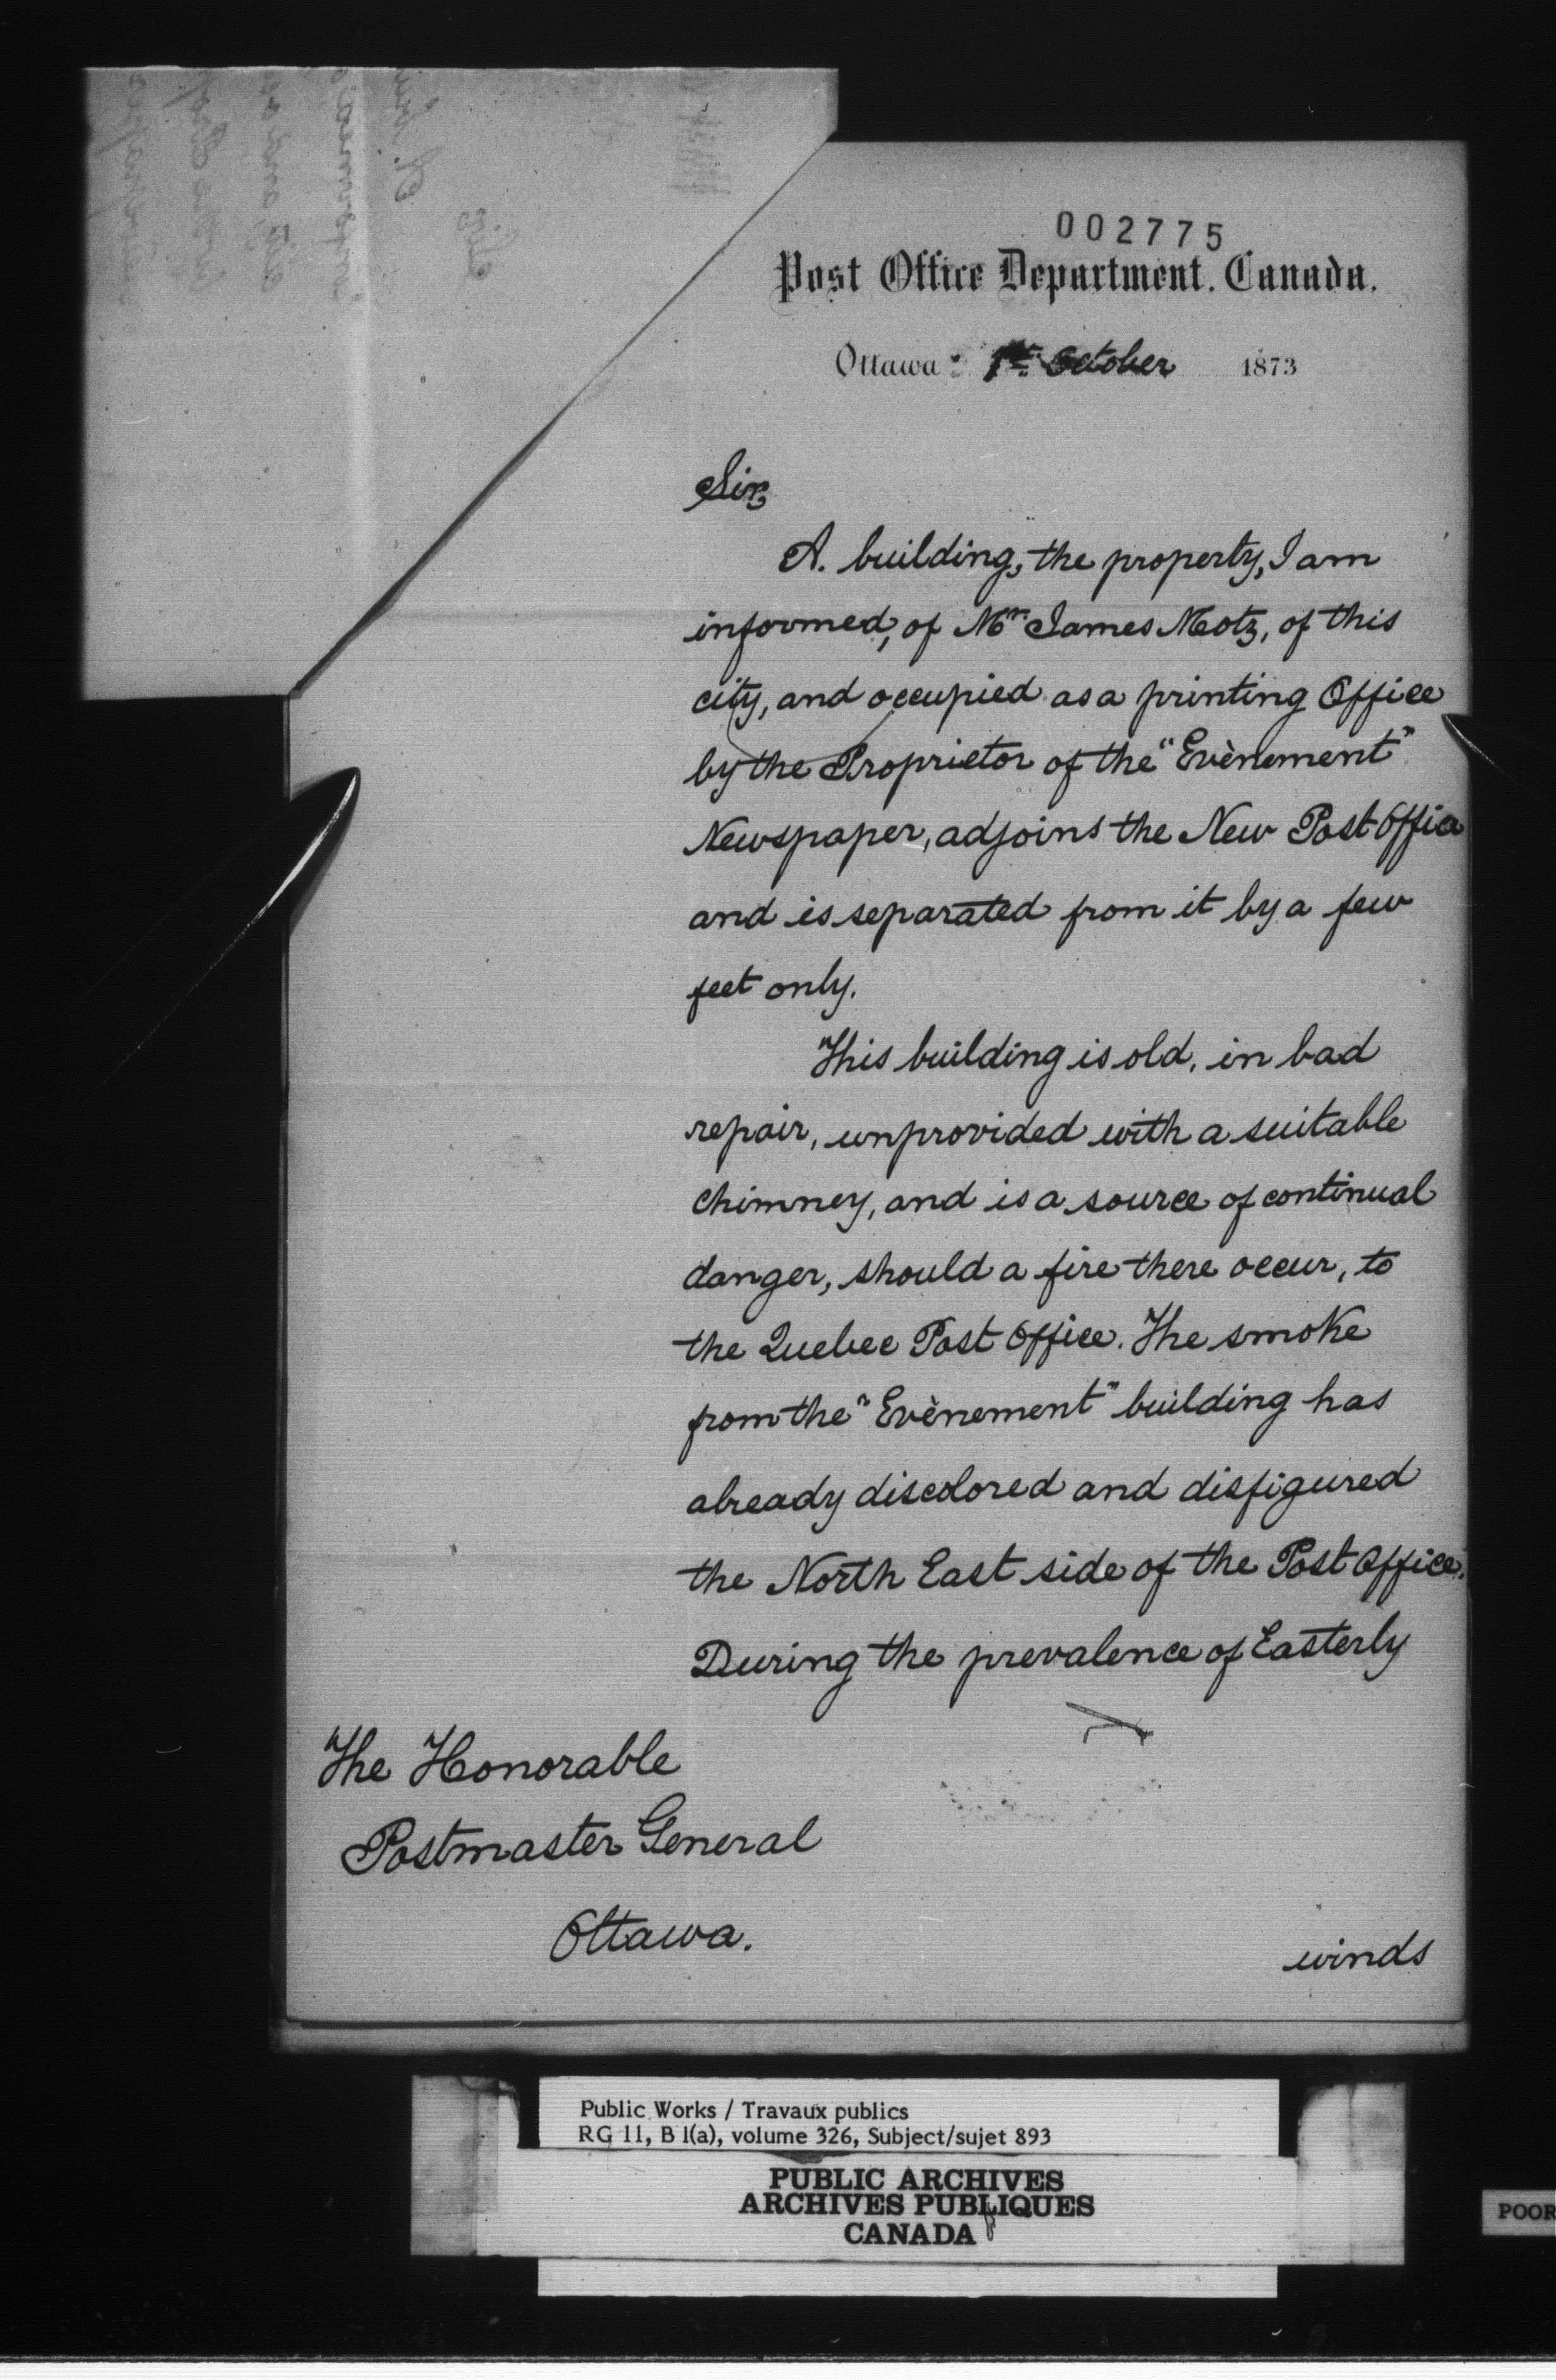 002775
Post Office Department. Canada.
Ottawa 1st October 1873
Sir,
A. building, the property, I am
informed, of Mr James Motz, of this
city, and occupied as a printing Office
by the Proprietor of the "Evènement"
Newspaper, adjoins the New Post Office
and is separated from it by a few
feet only.
This building is old, in bad
repair, unprovided with a suitable
chimney, and is a source of continual
danger, should a fire there occur, to
the Quebec Post Office. The smoke
from the "Evènement" building has
already discolored and disfigured
the North East side of the Post Office.
During the prevalence of Easterly
The Honorable
Postmaster General
Ottawa.
winds
Public Works / Travaux publics
RG 11, B 1(a), volume 326, Subject/sujet 893
PUBLIC ARCHIVES
ARCHIVES PUBLIQUES
CANADA
POOR